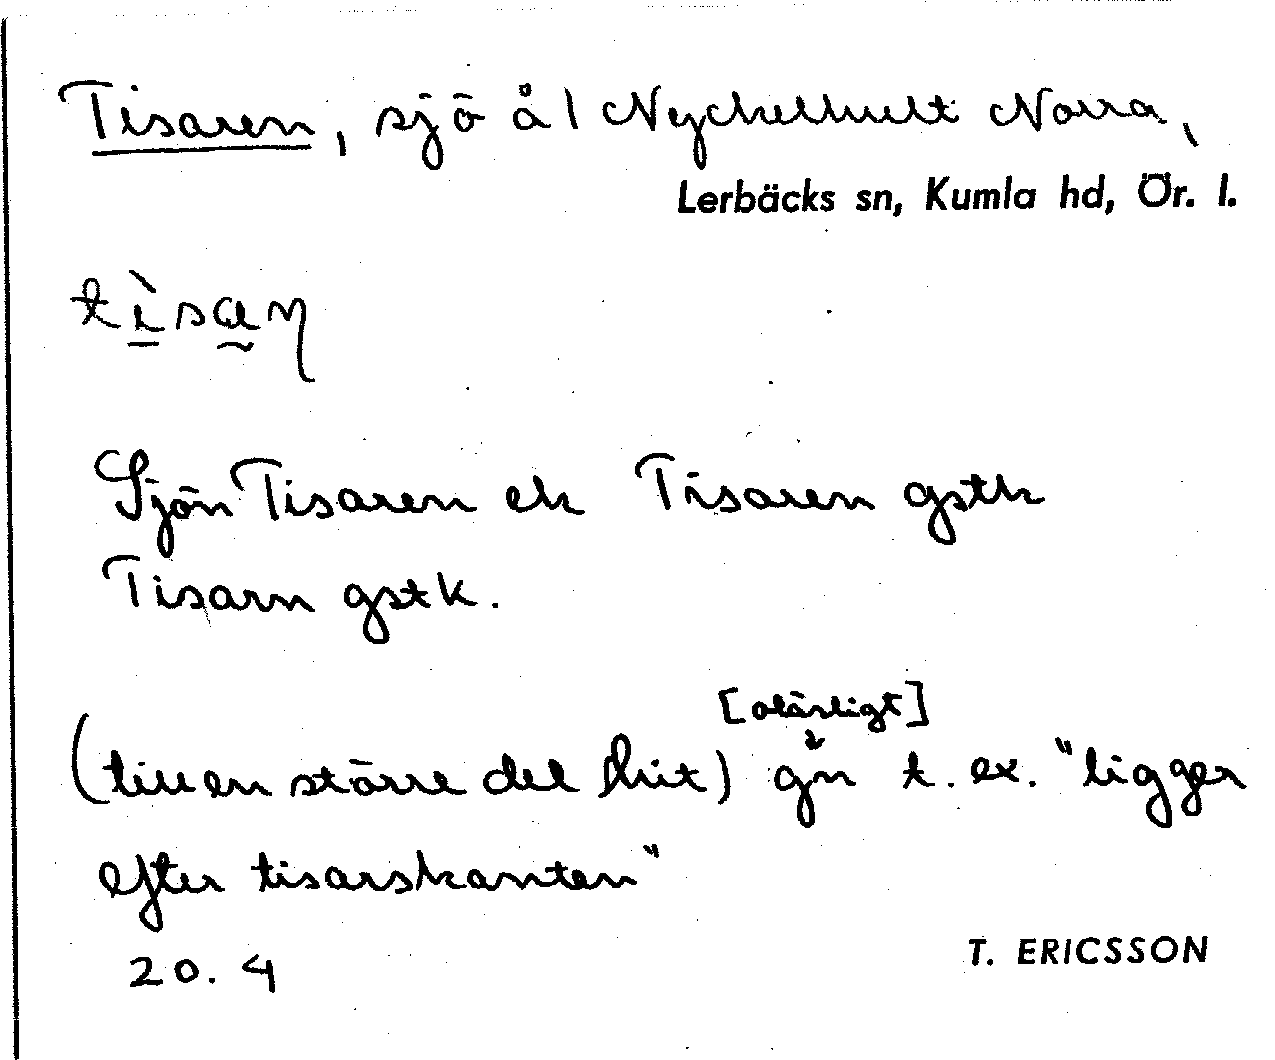 Tisaren, sjö ål Nyckelhult Norra,
Lerbäcks sn, Kumla hd, Ör. l.
tìsaɳ
Sjön Tisaren ek Tisaren gstk
Tisarn gstk.
[olärligt]
(till en större del hit) gm t. ex. "ligger
efter tisarskanten"
20. 4
T. ERICSSON